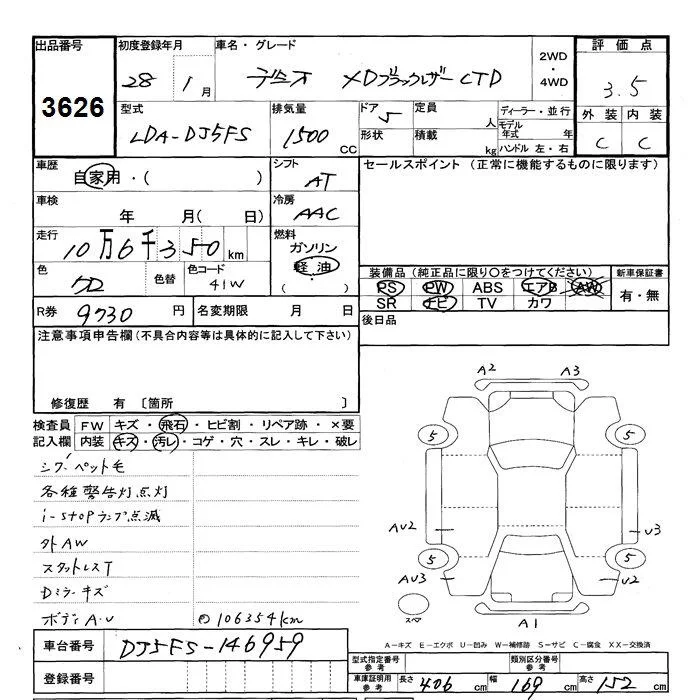 出品番号 初度登録年月 車名・グレード 2WD・4WD 評価点
3626 28 1月 デミオ XDブラックレザーCTD 3.5
型式 排気量 ドア 定員 人 ディーラー・並行 外装 内装
LDA-DJ5FS 1500 CC 5 形状 積載 kg モデル年式 年 ハンドル 左・右 C C
車歴 自家用・( ) シフト AT セールスポイント (正常に機能するものに限ります)
車検 年 月( 日) 冷房 AAC
走行 10万6千350km 燃料 ガソリン
軽油
( )
色 色替 色コード 41W
装備品 (純正品に限り○をつけてください) 新車保証書
PS PW ABS エアB AW 有・無
SR ナビ TV カワ
R券 9730 円 名変期限 月 日 後日品
注意事項申告欄(不具合内容等は具体的に記入して下さい)
修復歴 有 〔箇所 〕
検査員 FW キズ・飛石・ヒビ割・リペア跡・×要
記入欄 内装 キズ・汚レ・コゲ・穴・スレ・キレ・破レ
シワ・ペット毛
各種警告灯点灯
i-stopランプ点滅
外AW
スタットレスT
Dミラーキズ
ボディA・U 106354km
A2 A3
5 5
AU2 U3
5 5
AU3 U2
スペア A1
A-キズ E-エクボ U-凹み W-補修跡 S-サビ C-腐食 XX-交換済
車台番号 DJ5FS-146959
型式指定番号 参考 類別区分番号 参考
登録番号 車庫証明用 参考 長さ 406 cm 幅 169 cm 高さ 152 cm